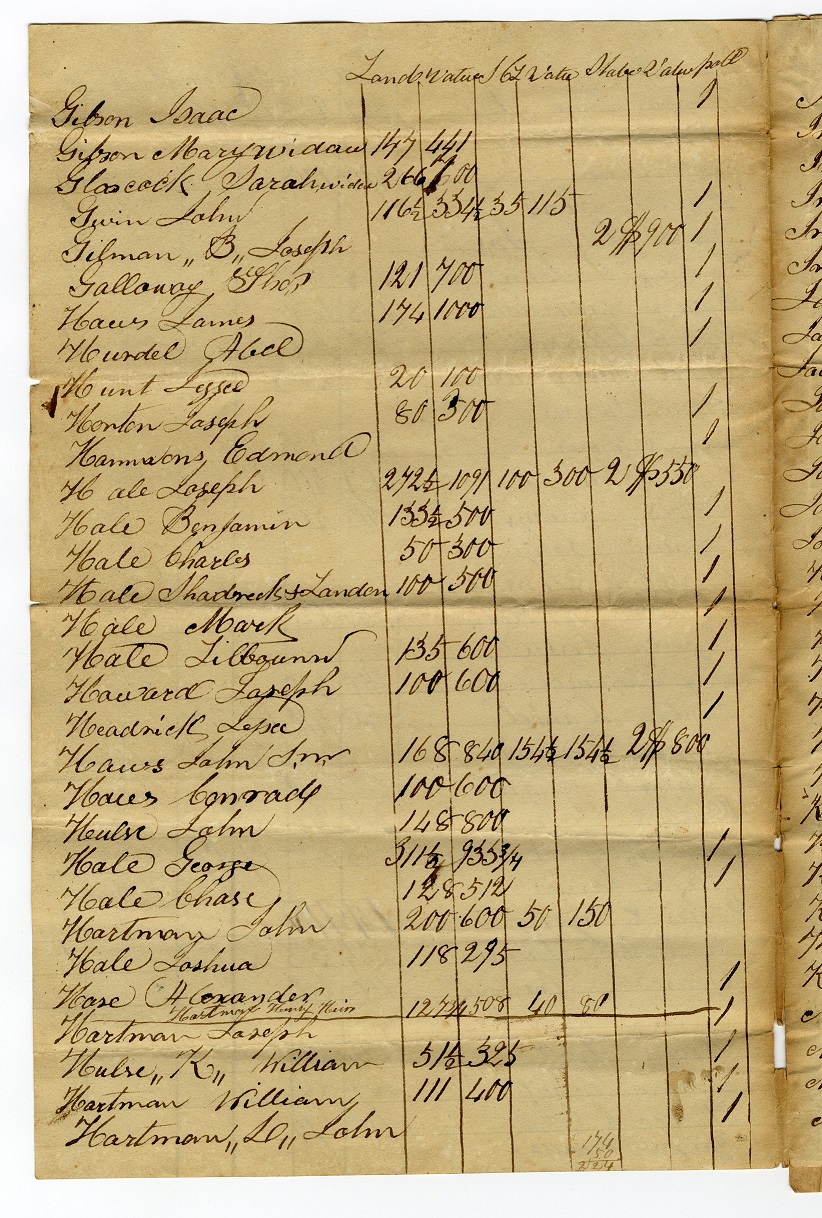 Land Value S L Value Slave Value poll
Gibson Isaac 1
Gibson Mary widow 147 441
Glascock Sarah widow 266 600
Gwin John 116½ 334½ 35 115 1
Gilman „ B „ Joseph 2 $900 1
Galloway Thos 121 700 1
Haws James 174 1000 1
Hurdel Abel 1
Hunt Jesse 20 100
Horton Joseph 80 300 1
Hammons Edmond 1
Hale Joseph 272½ 1091 100 300 2 $550
Hale Benjamin 133½ 500 1
Hale Charles 50 300 1
Hale Shadreck & Landon 100 500 1
Hale Mark 1
Hale 135 600 1
Howard Joseph 100 600 1
Headrick Jesse 1
Haws John Snr 168 840 154½ 154½ 2 $800
Haws Conrade 100 600
Hulse John 148 800
Hale George 311½ 935¾ 1
Hale Chase 128 512 1
Hartman John 200 600 50 150
Hale Joshua 118 295
Hase Alexander 1
Hartman Henry Heirs 127¼ 508 40 80
Hartman Joseph 1
Hulse „ K „ William 51½ 325 1
Hartman William 111 400 1
Hartman „ D „ John 1
174
50
224